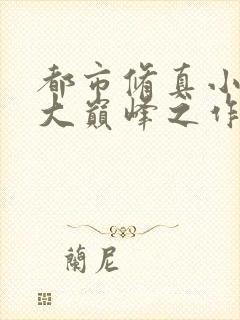 都市修真小
大巔峰之作
蘭尼